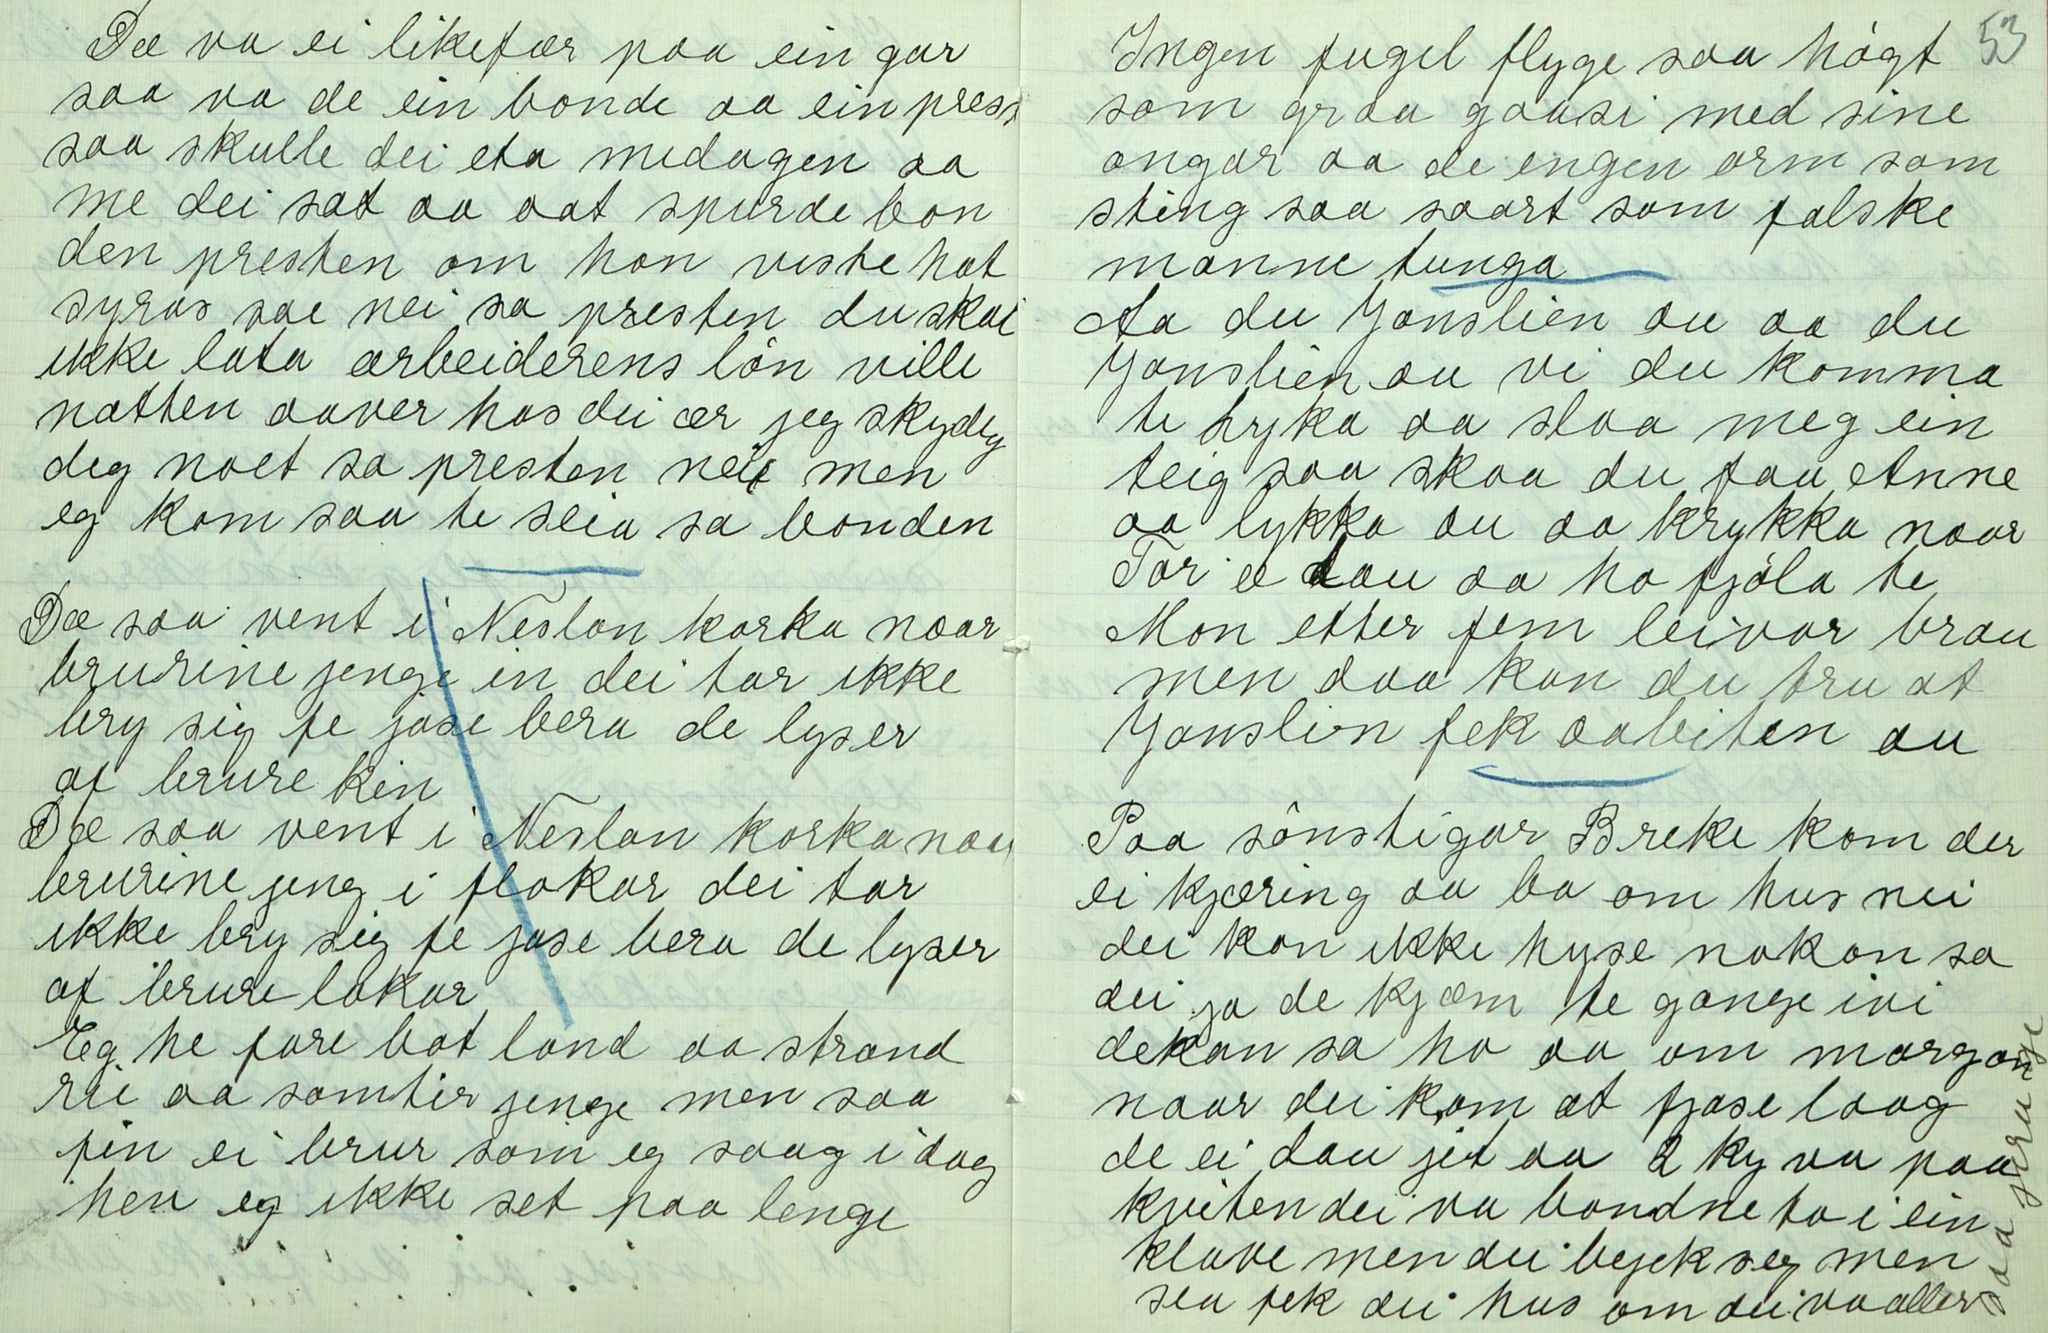 Dæ va ei likefær paa ein gar
saa va de ein bonde aa ein prest
saa skulle dei eta medagen aa
me dei sat aa aat spurde bon
den presten om han viste hot
syras sae nei sa presten du skal
ikke lata arbeiderens lôn ville
natten aaver hos dei ær jeg skydig
deg noet sa presten nei men
eg kom saa te seia sa bonden
Dæ saa vent i Neslan korka naar
brurine jenge in dei tar ikke
bry sig fe jose bera de lyser
af brure kin
Dæ saa vent i Neslan korka naar
brurine jeng i flokar dei tar
ikke bry sig fe jose bera de lyser
af brure lokar
Eg he fare bot land aa strand
rie aa somtir jenge men saa
fin ei brur som eg saag i dag
hen eg ikke set paa lenge
53
Ingen fugel flyge saa hógt
som graa gaasi med sine
ongar aa de engen orm som
sting saa saart som falske
manne tunga
Aa du Jonslien au aa du
Jonslien au vi du komma
te hyka aa slaa meg ein
teig saa skaa du faa Anne
aa lykka au aa krykka naar
Tor e dau aa ho fjóla te
Mon etter fem leivar brau
men daa kan du tru at
Jonslien fek aabiten au
Paa sônstigar Breke kom der
ei kjæring aa ba om hus nei
dei kan ikke hyse nokon sa
dei ja de kjæm te gange ivi
dekan sa ho aa om morgon
naar dei kom at fjose laag
de ei dau jet aa 2 ky va paa
kviten dei va bondne to i ein
klave men dei bejek seg men
sea fek dei hus om dei va aller
saa jrauge